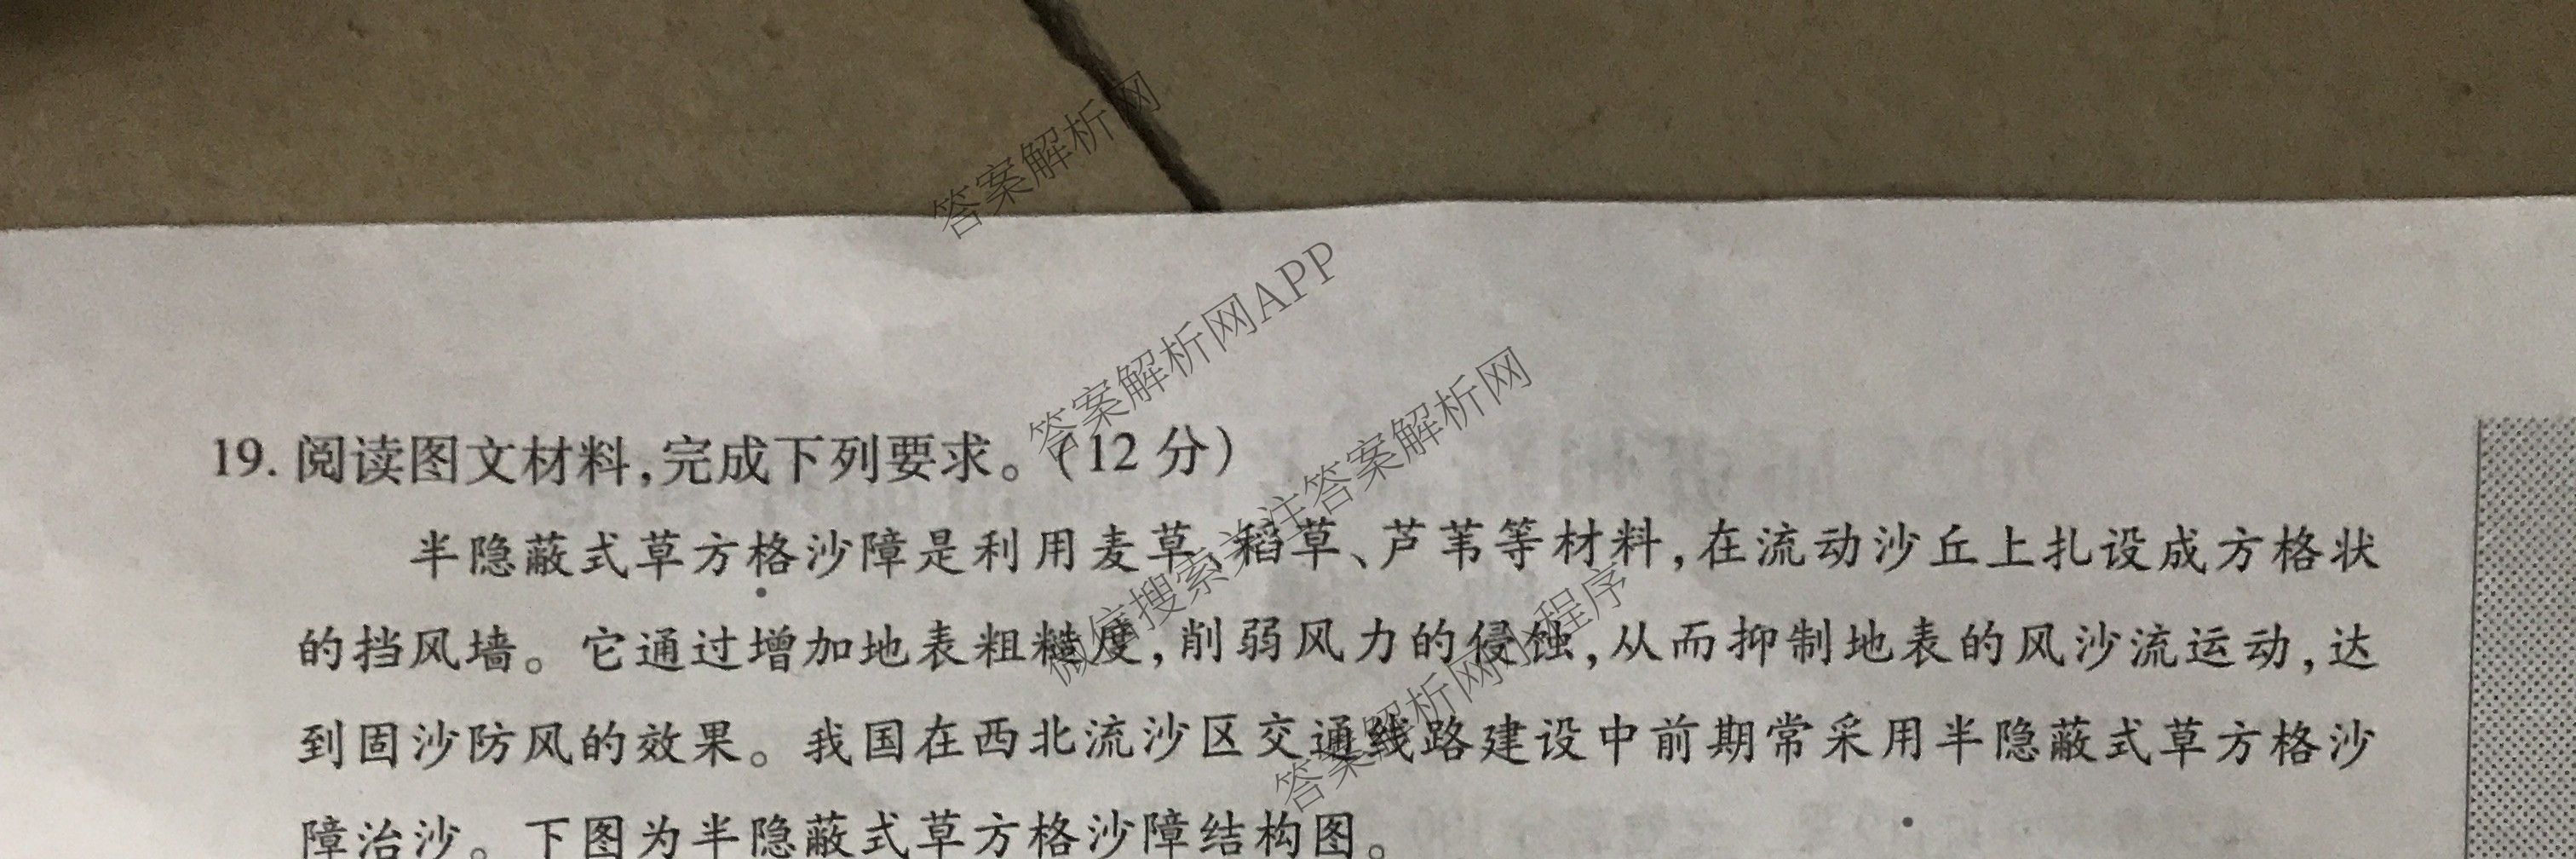 答案解析网
答案解析网APP
19. 阅读图文材料,完成下列要求。(12 分)
微信搜索关注答案解析网
半隐蔽式草方格沙障是利用麦草、稻草、芦苇等材料,在流动沙丘上扎设成方格状
的挡风墙。它通过增加地表粗糙度,削弱风力的侵蚀,从而抑制地表的风沙流运动,达
答案解析网小程序
到固沙防风的效果。我国在西北流沙区交通线路建设中前期常采用半隐蔽式草方格沙
障治沙。下图为半隐蔽式草方格沙障结构图。